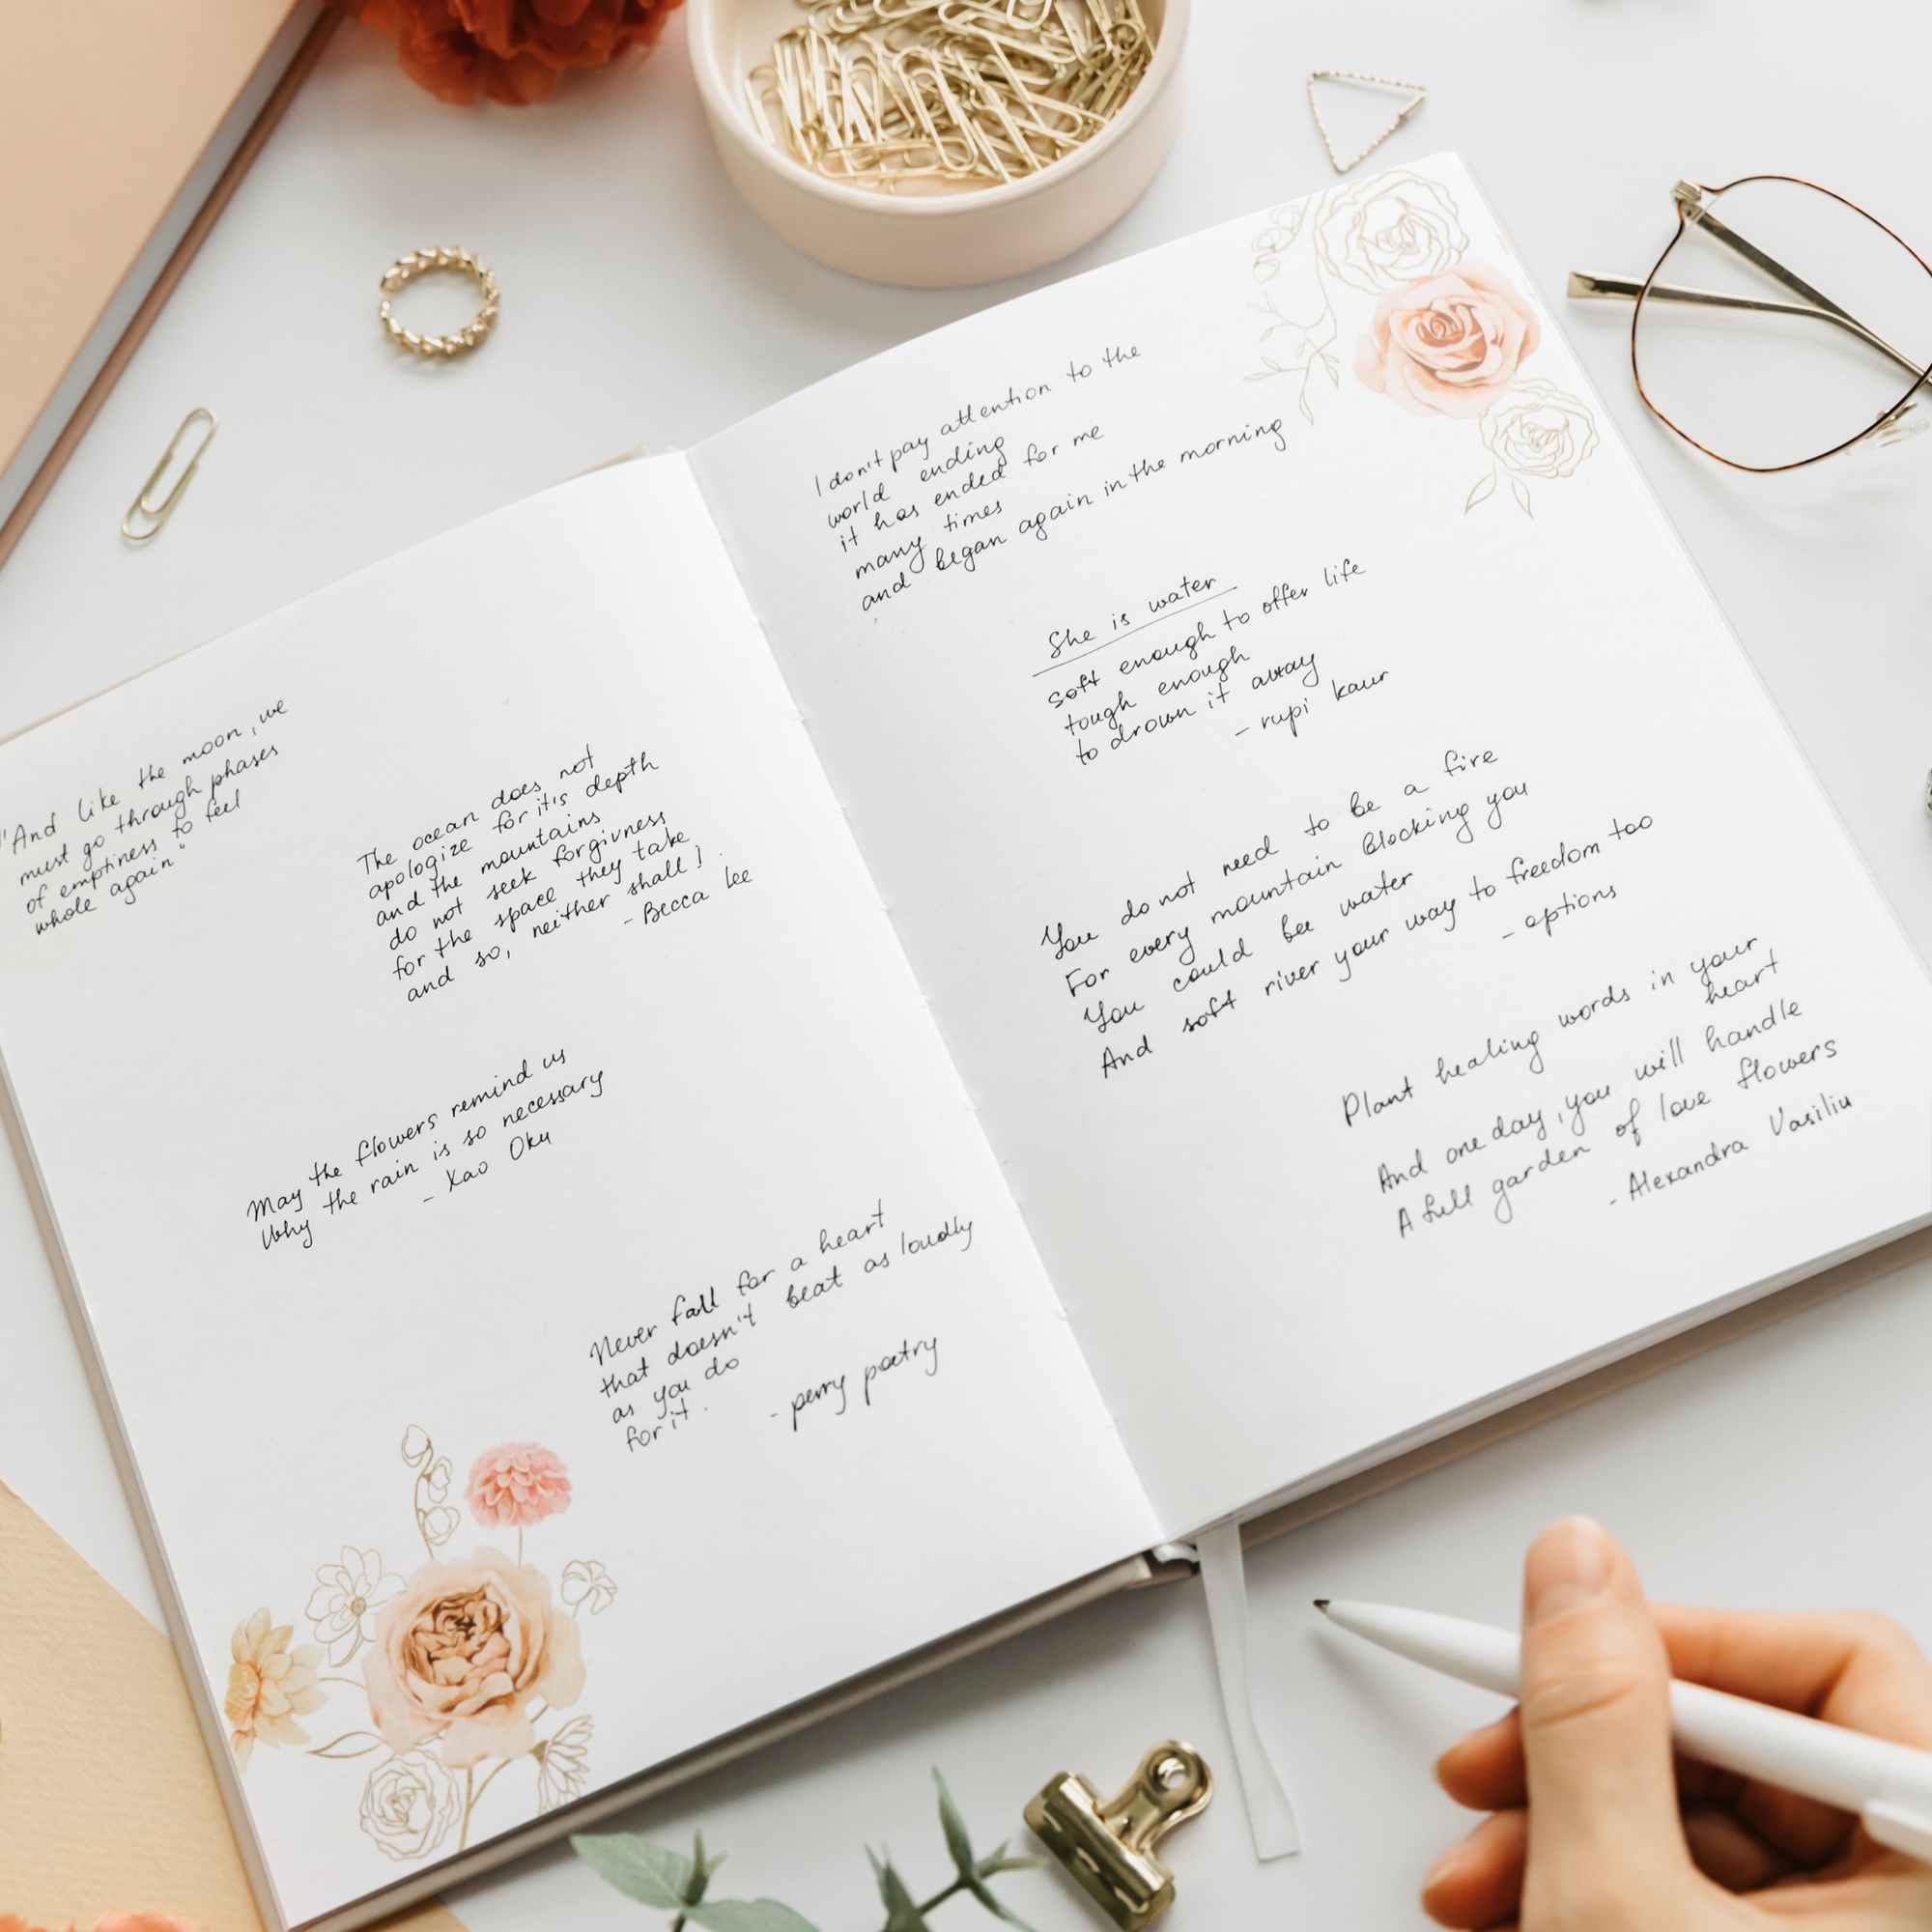 "And like the moon, we
must go through phases
of emptiness to feel
whole again"
The ocean does not
apologize for it's depth
and the mountains
do not seek forgivness
for the space they take
and so, neither shall I
- Becca Lee
May the flowers remind us
Why the rain is so necessary
- Xao Oku
Never fall for a heart
that doesn't beat as loudly
as you do
for it.
- perry poetry
I don't pay attention to the
world ending
it has ended for me
many times
and began again in the morning
She is water
soft enough to offer life
tough enough
to drown it away
- rupi kaur
You do not need to be a fire
For every mountain blocking you
You could be water
And soft river your way to freedom too
- options
Plant healing words in your
heart
And one day, you will handle
A full garden of love flowers
- Alexandra Vasiliu